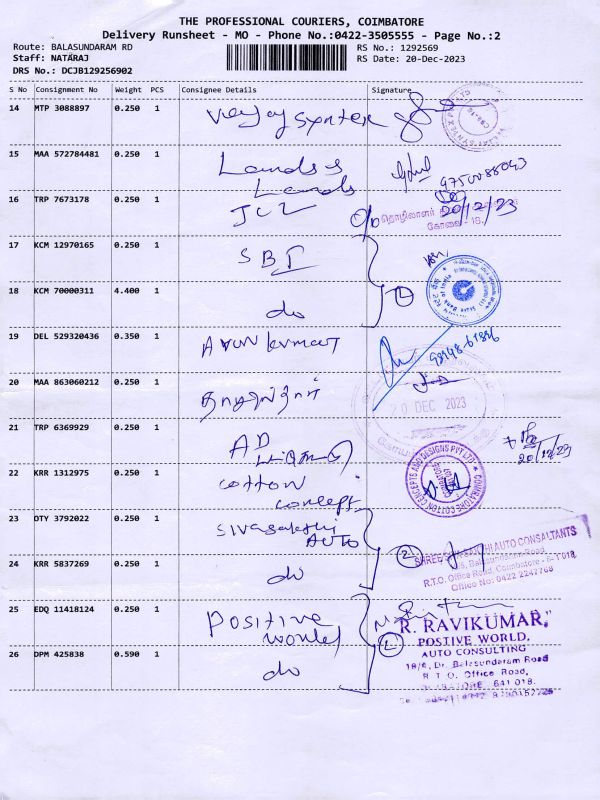 THE PROFESSIONAL COURIERS, COIMBATORE
Delivery Runsheet - MO - Phone No.:0422-3505555 - Page No.:2
Route: BALASUNDARAM RD
RS No.: 1292569
Staff: NATARAJ
RS Date: 20-Dec-2023
DRS No.: DCJB129256902
S No Consignment No Weight PCS Consignee Details Signature
14 MTP 3088897 0.250 1 Vijay Syntex
15 MAA 572784481 0.250 1 Lands &
Lands
9750088043
16 TRP 7673178 0.250 1 JCL
20/12/23
தொழிலாளர்
கோவை - 18.
17 KCM 12970165 0.250 1 SBI
18 KCM 70000311 4.400 1 do
19 DEL 529320436 0.350 1 Arunkumar
20 MAA 863060212 0.250 1
20 DEC 2023
21 TRP 6369929 0.250 1 AD
20/12/23
22 KRR 1312975 0.250 1 cotton
concept
COIMBATORE COTTON CONCEPTS AND DESIGNS PVT LTD
23 DTY 3792022 0.250 1 Sivasakthi
AUTO
SHREE SIVASAKTHI AUTO CONSULTANTS
Balasundaram Road
R.T.O. Office Road, Coimbatore - 641 018.
Office No: 0422 2247768
24 KRR 5837269 0.250 1 do
25 EDQ 11418124 0.250 1 Positive
world
R. RAVIKUMAR,
POSTIVE WORLD,
AUTO CONSULTING
18/6, Dr. Balasundaram Road
R T O. Office Road,
COIMBATORE 641 018.
26 DPM 425838 0.590 1 do